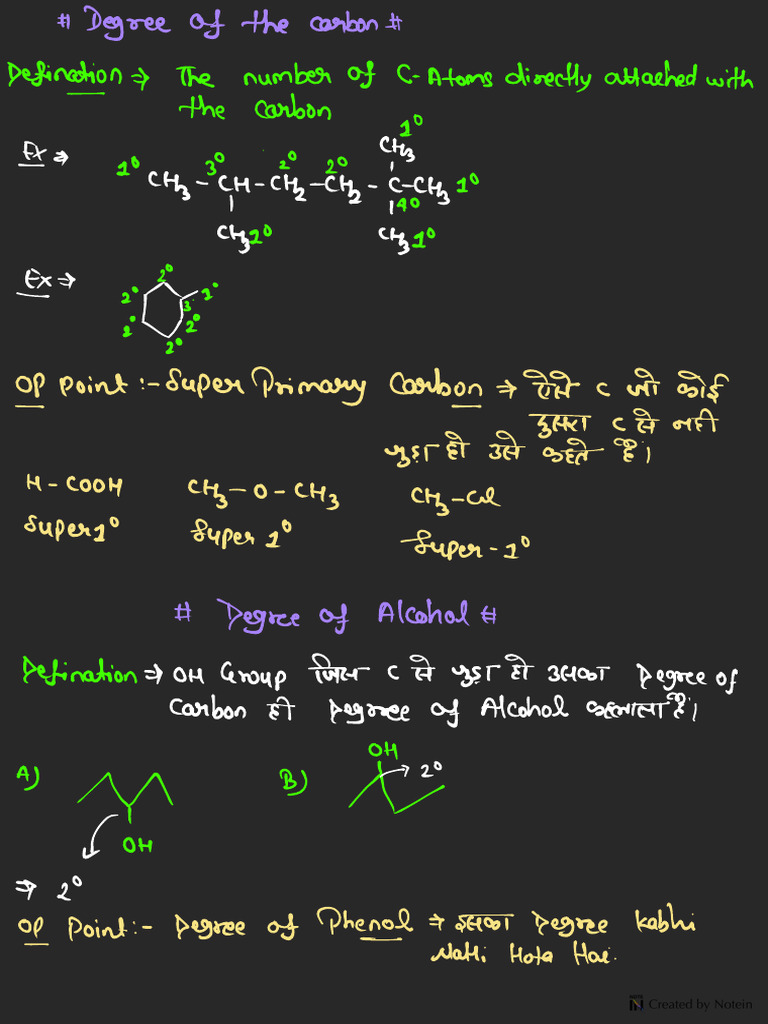 # Degree of the carbon #
Defination ⇒ The number of C-Atoms directly attached with
the carbon
Ex ⇒
1° 3° 2° 2° 1°
CH3
CH3 - CH - CH2 - CH2 - C - CH3 1°
4°
CH3 1° CH3 1°
Ex ⇒
2°
2° 1°
3°
2° 2°
2°
OP Point :- Super Primary Carbon ⇒ ऐसे C जो कोई
दुसरा C से नही
जुड़ा हो उसे कहते है।
H - COOH CH3 - O - CH3 CH3 - Cl
Super 1° Super 1° Super - 1°
# Degree of Alcohol #
Defination ⇒ OH Group जिस C से जुड़ा हो उसका Degree of
Carbon ही Degree of Alcohol कहलाता है।
A) B) OH
2°
OH
⇒ 2°
OP Point :- Degree of Phenol ⇒ इसका Degree Kabhi
Nahi Hota Hai.
Created by Notein